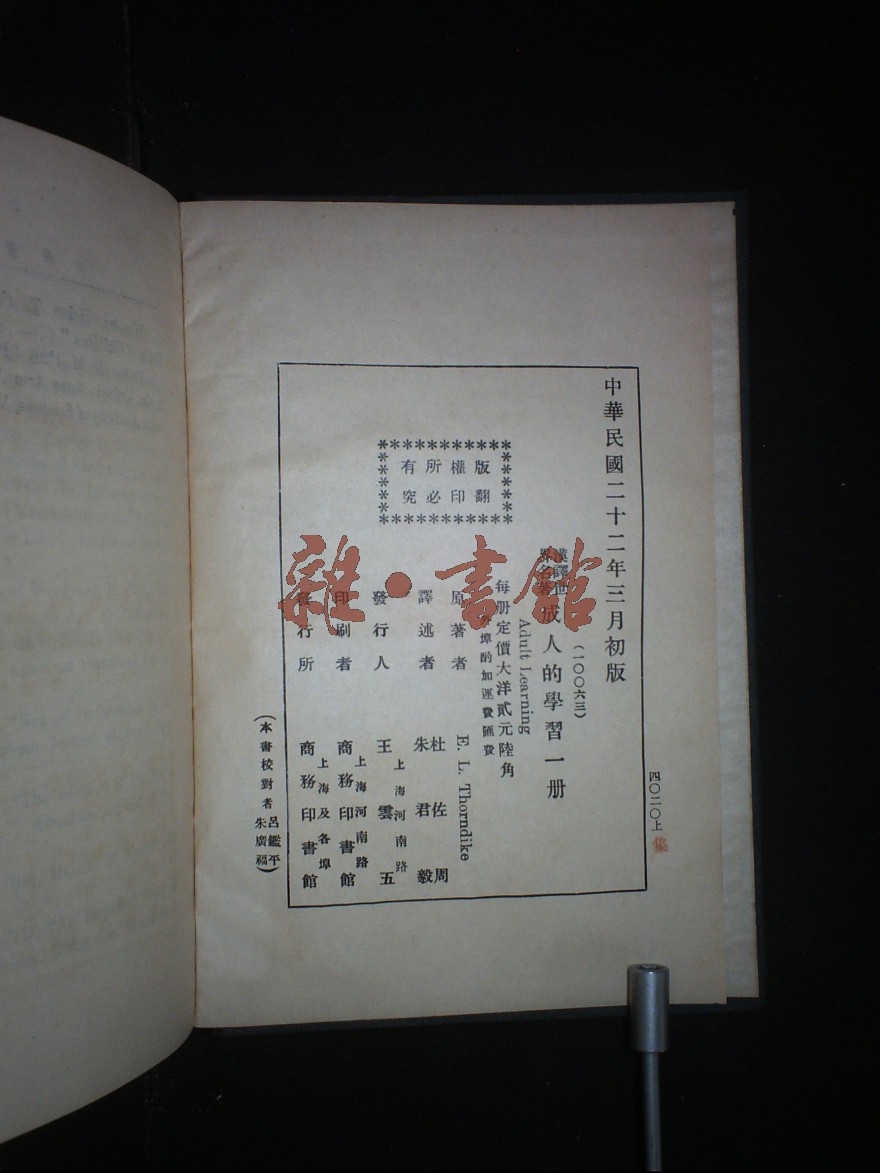 中華民國二十二年三月初版
(一〇〇六三)
漢譯世界名著 成人的學習一册
Adult Learning
每册定價大洋貳元陸角
外埠酌加運費匯費
版權所有
翻印必究
原著者 E. L. Thorndike
譯述者 杜佐周 朱君毅
發行人 王雲五
上海河南路
印刷者 商務印書館
上海河南路
發行所 商務印書館
上海及各埠
(本書校對者 呂鑑平 朱廣福)
四〇二〇上
集
雜·書館